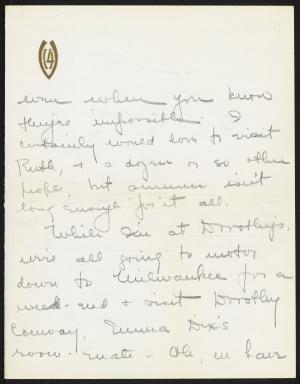 even when you know
they're impossible. I
certainly would love to visit
Ruth, & a dozen or so other
people, but summer isn't
long enough for it all.
While I'm at Dorothy's,
we're all going to motor
down to Milwaukee for a
week-end & visit Dorothy
Conway, Emma Dix's
room-mate. Oh, we have